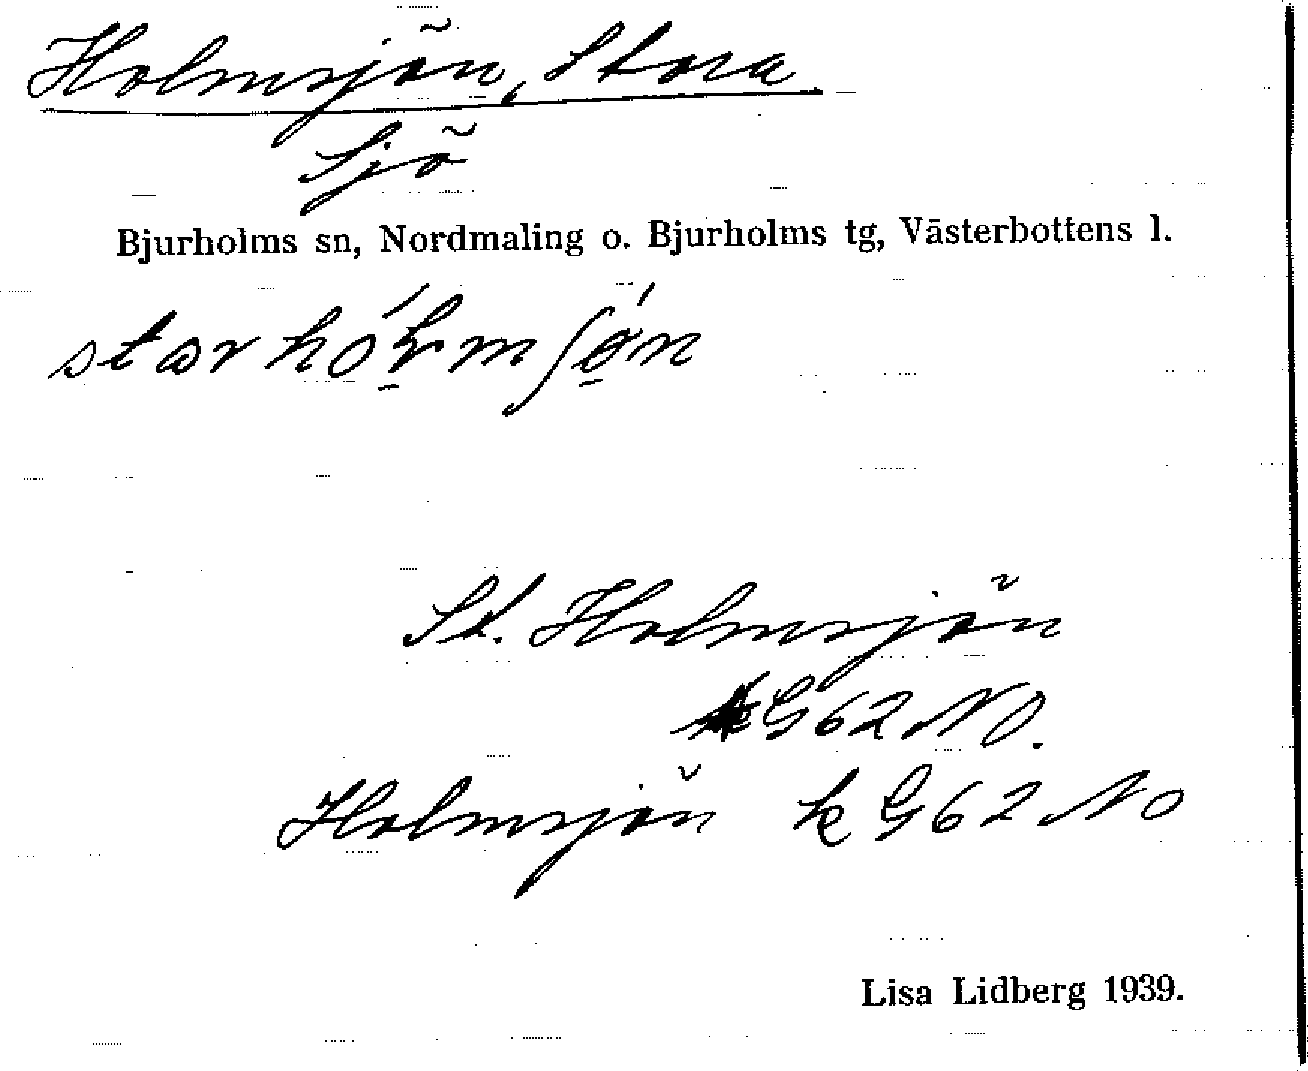 Holmsjön, Stora.
Sjö
Bjurholms sn, Nordmaling o. Bjurholms tg, Västerbottens l.
St. Holmsjön
G62 NO.
Holmsjön k G62 NO
Lisa Lidberg 1939.